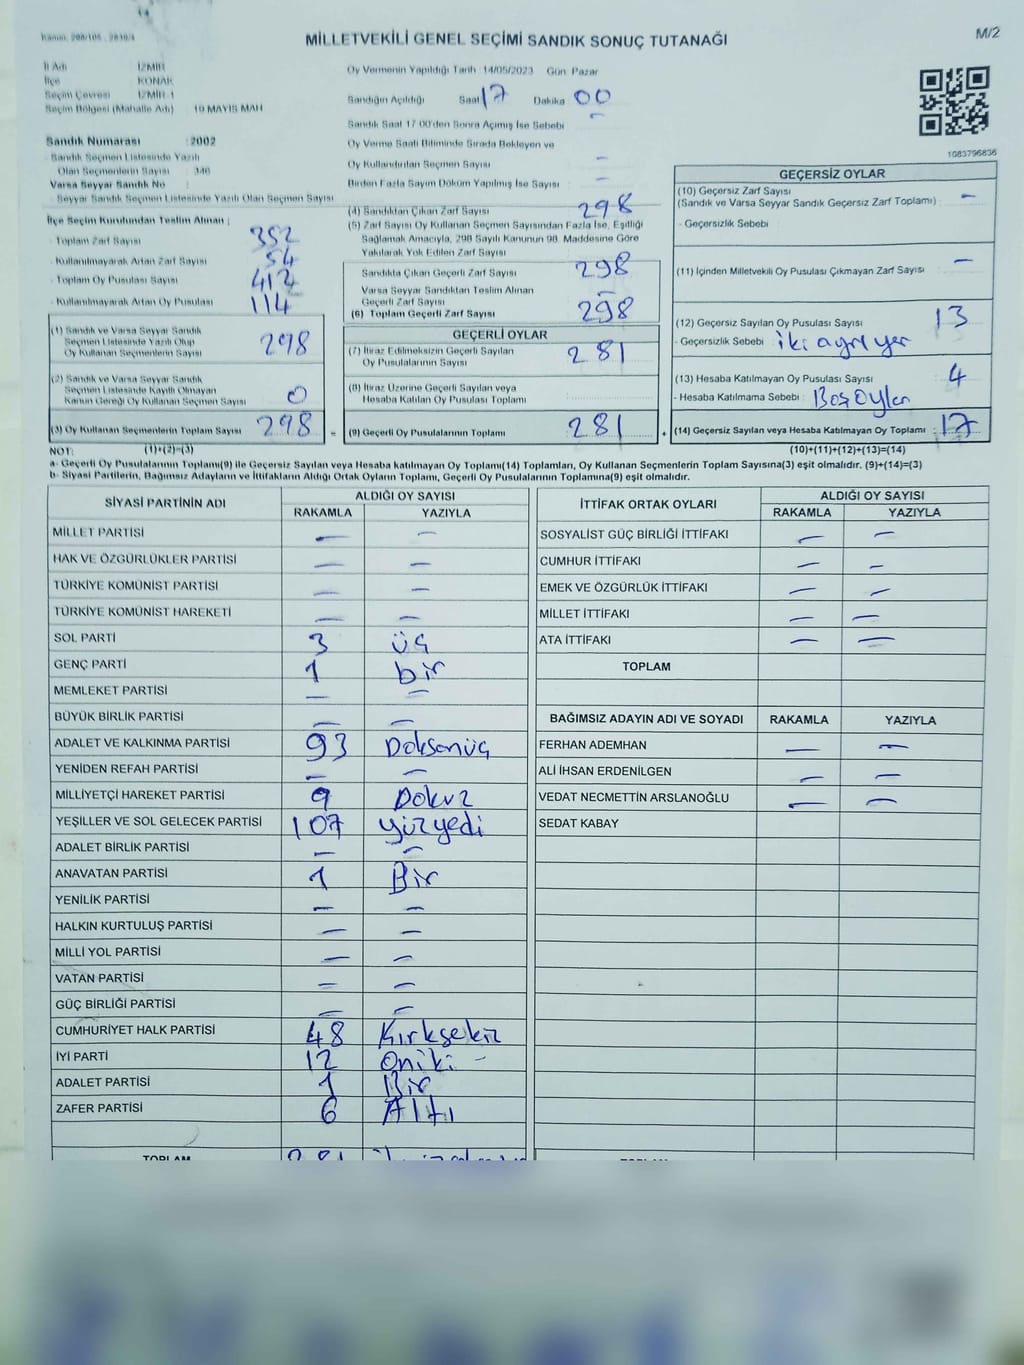 MİLLETVEKİLİ GENEL SEÇİMİ SANDIK SONUÇ TUTANAĞI
M/2
İl Adı İZMİR
İlçe KONAK
Seçim Çevresi İZMİR 1
Seçim Bölgesi (Mahalle Adı) 19 MAYIS MAH
Oy Vermenin Yapıldığı Tarih 14/05/2023 Gün Pazar
Sandığın Açıldığı Saat 17 Dakika 00
Sandık Saat 17:00'den Sonra Açımış İse Sebebi
Oy Verme Saati Bitiminde Sırada Bekleyen ve
Oy Kullandırılan Seçmen Sayısı –
Birden Fazla Sayım Döküm Yapılmış İse Sayısı –
1083796836
Sandık Numarası : 2002
- Sandık Seçmen Listesinde Yazılı
Olan Seçmenlerin Sayısı : 346
Varsa Seyyar Sandık No :
- Seyyar Sandık Seçmen Listesinde Yazılı Olan Seçmen Sayısı
İlçe Seçim Kurulundan Teslim Alınan ;
- Toplam Zarf Sayısı 352
- Kullanılmayarak Artan Zarf Sayısı 54
- Toplam Oy Pusulası Sayısı 412
- Kullanılmayarak Artan Oy Pusulası 114
(1) Sandık ve Varsa Seyyar Sandık
Seçmen Listesinde Yazılı Olup
Oy Kullanan Seçmenlerin Sayısı 298
(2) Sandık ve Varsa Seyyar Sandık
Seçmen Listesinde Kayıtlı Olmayan
Kanun Gereği Oy Kullanan Seçmen Sayısı 0
(3) Oy Kullanan Seçmenlerin Toplam Sayısı 298 =
(4) Sandıktan Çıkan Zarf Sayısı 298
(5) Zarf Sayısı Oy Kullanan Seçmen Sayısından Fazla İse, Eşitliği
Sağlamak Amacıyla, 298 Sayılı Kanunun 98. Maddesine Göre
Yakılarak Yok Edilen Zarf Sayısı
Sandıkta Çıkan Geçerli Zarf Sayısı 298
Varsa Seyyar Sandıktan Teslim Alınan
Geçerli Zarf Sayısı –
(6) Toplam Geçerli Zarf Sayısı 298
GEÇERLİ OYLAR
(7) İtiraz Edilmeksizin Geçerli Sayılan
Oy Pusulalarının Sayısı 281
(8) İtiraz Üzerine Geçerli Sayılan veya
Hesaba Katılan Oy Pusulası Toplamı
(9) Geçerli Oy Pusulalarının Toplamı 281 +
GEÇERSİZ OYLAR
(10) Geçersiz Zarf Sayısı
(Sandık ve Varsa Seyyar Sandık Geçersiz Zarf Toplamı) : –
- Geçersizlik Sebebi
(11) İçinden Milletvekili Oy Pusulası Çıkmayan Zarf Sayısı –
(12) Geçersiz Sayılan Oy Pusulası Sayısı 13
- Geçersizlik Sebebi : iki ayrı yer
(13) Hesaba Katılmayan Oy Pusulası Sayısı 4
- Hesaba Katılmama Sebebi : Boş Oylar
(14) Geçersiz Sayılan veya Hesaba Katılmayan Oy Toplamı 17
NOT: (1)+(2)=(3) (10)+(11)+(12)+(13)=(14)
a- Geçerli Oy Pusulalarının Toplamı(9) ile Geçersiz Sayılan veya Hesaba katılmayan Oy Toplamı(14) Toplamları, Oy Kullanan Seçmenlerin Toplam Sayısına(3) eşit olmalıdır. (9)+(14)=(3)
b- Siyasi Partilerin, Bağımsız Adayların ve İttifakların Aldığı Ortak Oyların Toplamı, Geçerli Oy Pusulalarının Toplamına(9) eşit olmalıdır.
SİYASİ PARTİNİN ADI ALDIĞI OY SAYISI
RAKAMLA YAZIYLA
MİLLET PARTİSİ – –
HAK VE ÖZGÜRLÜKLER PARTİSİ – –
TÜRKİYE KOMÜNİST PARTİSİ – –
TÜRKİYE KOMÜNİST HAREKETİ – –
SOL PARTİ 3 üç
GENÇ PARTİ 1 bir
MEMLEKET PARTİSİ – –
BÜYÜK BİRLİK PARTİSİ – –
ADALET VE KALKINMA PARTİSİ 93 Doksanüç
YENİDEN REFAH PARTİSİ – –
MİLLİYETÇİ HAREKET PARTİSİ 9 Dokuz
YEŞİLLER VE SOL GELECEK PARTİSİ 107 yüzyedi
ADALET BİRLİK PARTİSİ – –
ANAVATAN PARTİSİ 1 Bir
YENİLİK PARTİSİ – –
HALKIN KURTULUŞ PARTİSİ – –
MİLLİ YOL PARTİSİ – –
VATAN PARTİSİ – –
GÜÇ BİRLİĞİ PARTİSİ – –
CUMHURİYET HALK PARTİSİ 48 Kırksekiz
İYİ PARTİ 12 Oniki –
ADALET PARTİSİ 1 Bir
ZAFER PARTİSİ 6 Altı
TOPLAM 281
İTTİFAK ORTAK OYLARI ALDIĞI OY SAYISI
RAKAMLA YAZIYLA
SOSYALİST GÜÇ BİRLİĞİ İTTİFAKI – –
CUMHUR İTTİFAKI – –
EMEK VE ÖZGÜRLÜK İTTİFAKI – –
MİLLET İTTİFAKI – –
ATA İTTİFAKI – –
TOPLAM
BAĞIMSIZ ADAYIN ADI VE SOYADI RAKAMLA YAZIYLA
FERHAN ADEMHAN – –
ALİ İHSAN ERDENİLGEN – –
VEDAT NECMETTİN ARSLANOĞLU – –
SEDAT KABAY